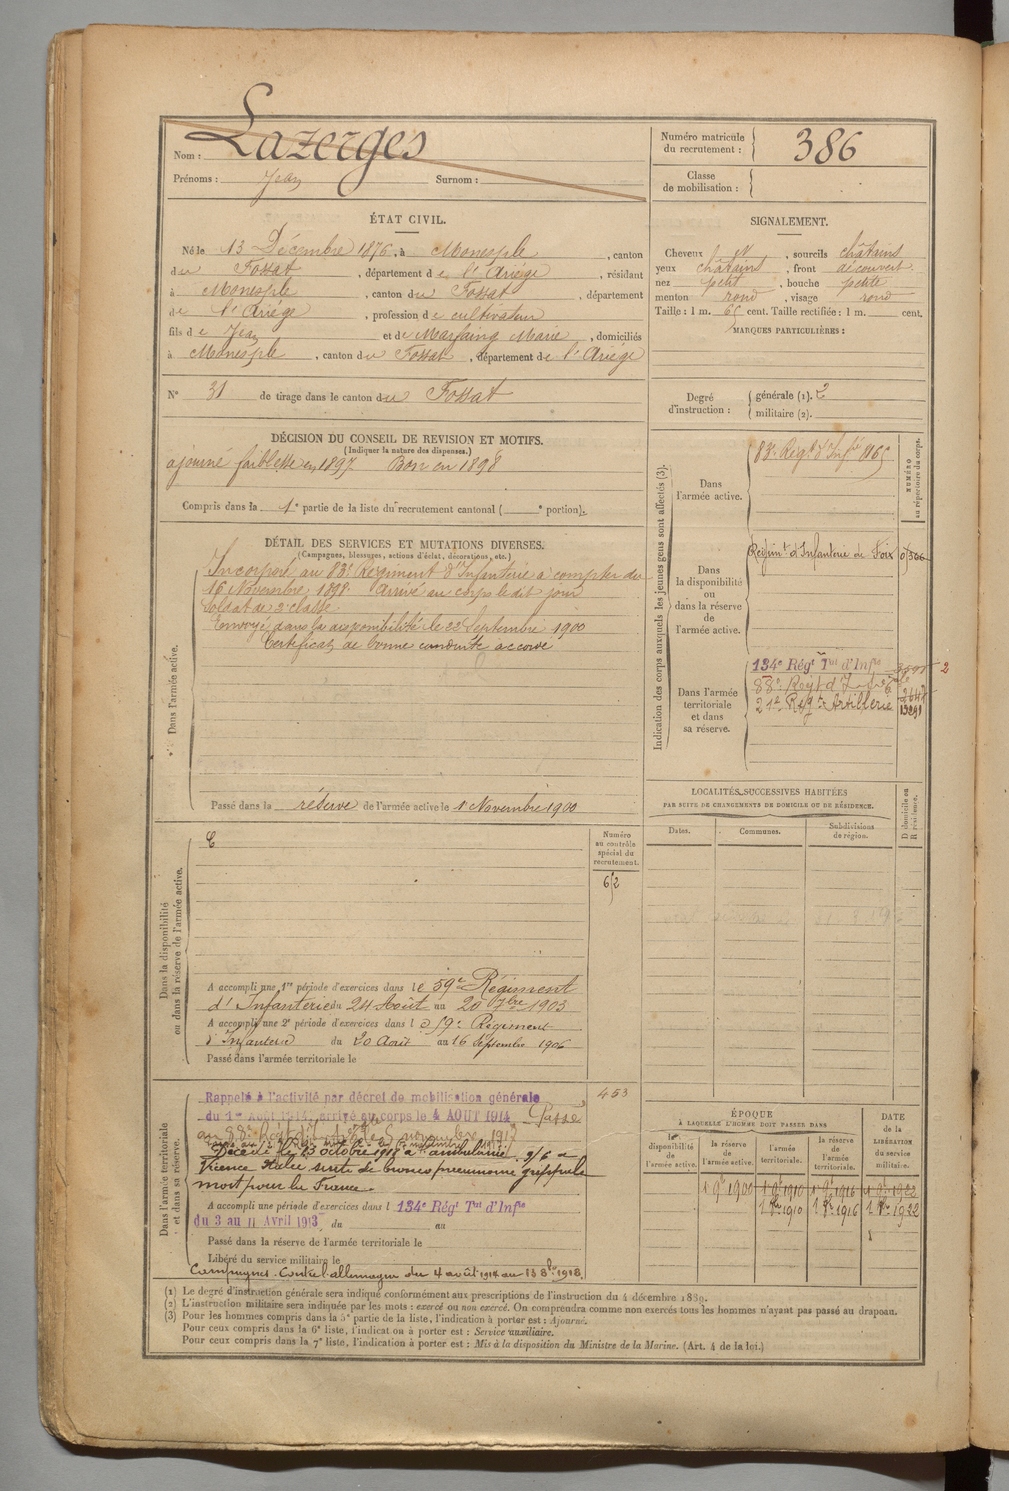 Nom : Lazerges
Prénoms : Jean Surnom :
Numéro matricule du recrutement : 386
Classe de mobilisation :
ÉTAT CIVIL.
Né le 13 Décembre 1876, à Monesple, canton
du Fossat, département de l'Ariége, résidant
à Monesple, canton du Fossat, département
de l'Ariége, profession de cultivateur
fils de Jean et de Marfaing Marie, domiciliés
à Monesple, canton du Fossat, département de l'Ariége
N° 31 de tirage dans le canton du Fossat
SIGNALEMENT.
Cheveux et, sourcils châtains
yeux châtains, front découvert
nez petit, bouche petite
menton rond, visage rond
Taille : 1 m. 65 cent. Taille rectifiée : 1 m. cent.
MARQUES PARTICULIÈRES :
Degré d'instruction : générale (1). 2
militaire (2).
DÉCISION DU CONSEIL DE REVISION ET MOTIFS.
(Indiquer la nature des dispenses.)
ajourné faiblesse en 1897 Bon en 1898
Compris dans la 1e partie de la liste du recrutement cantonal ( e portion).
DÉTAIL DES SERVICES ET MUTATIONS DIVERSES.
(Campagnes, blessures, actions d'éclat, décorations, etc.)
Dans l'armée active.
Incorporé au 83e Régiment d'Infanterie à compter du
16 Novembre 1898. Arrivé au corps le dit jour
Soldat de 2e classe
Envoyé dans la disponibilité le 22 Septembre 1900
Certificat de bonne conduite accordé
Passé dans la réserve de l'armée active le 1 Novembre 1900
Indication des corps auxquels les jeunes gens sont affectés (3).
NUMÉRO au répertoire du corps.
Dans l'armée active.
83e Régt d'Infie
Dans la disponibilité ou dans la réserve de l'armée active.
Régimt d'Infanterie de Foix
Dans l'armée territoriale et dans sa réserve.
134e Régt Tal d'Infie
88e Régt d'Infie
21e Régt Artillerie
2
LOCALITÉS SUCCESSIVES HABITÉES
PAR SUITE DE CHANGEMENTS DE DOMICILE OU DE RÉSIDENCE.
Dates. Communes. Subdivisions de région. D domicile ou R résidence.
Dans la disponibilité ou dans la réserve de l'armée active.
Numéro au contrôle spécial du recrutement.
A accompli une 1re période d'exercices dans le 59e Régiment
d'Infanterie du 24 Août au 20 7bre 1903
A accompli une 2e période d'exercices dans l 59e Régiment
d'Infanterie du 20 Août au 16 Septembre 1906
Passé dans l'armée territoriale le
Dans l'armée territoriale et dans sa réserve.
453
Rappelé à l'activité par décret de mobilisation générale
du 1er Août 1914, arrivé au corps le 4 AOUT 1914 Passé
au 88e Régt d'Infie le 5 novembre 191
Décédé le 13 octobre 1918 à l'ambulance 9/6 à
Vicence Italie suite de broncho pneumonie grippale
mort pour la France.
A accompli une période d'exercices dans l 134e Régt Tal d'Infie
du 3 au 11 Avril 1913 du au
Passé dans la réserve de l'armée territoriale le
Libéré du service militaire le
Campagnes. Contre l'allemagne du 4 août 1914 au 13 8bre 1918.
ÉPOQUE
À LAQUELLE L'HOMME DOIT PASSER DANS
DATE de la LIBÉRATION du service militaire.
la disponibilité de l'armée active. la réserve de l'armée active. l'armée territoriale. la réserve de l'armée territoriale.
1 9e 1900 1 9e 1910 1 9e 1916 1 9e 1922
1 8bre 1910 1 8bre 1916 1 8bre 1922
(1) Le degré d'instruction générale sera indiqué conformément aux prescriptions de l'instruction du 4 décembre 1889.
(2) L'instruction militaire sera indiquée par les mots : exercé ou non exercé. On comprendra comme non exercés tous les hommes n'ayant pas passé au drapeau.
(3) Pour les hommes compris dans la 5e partie de la liste, l'indication à porter est : Ajourné.
Pour ceux compris dans la 6e liste, l'indication à porter est : Service auxiliaire.
Pour ceux compris dans la 7e liste, l'indication à porter est : Mis à la disposition du Ministre de la Marine. (Art. 4 de la loi.)